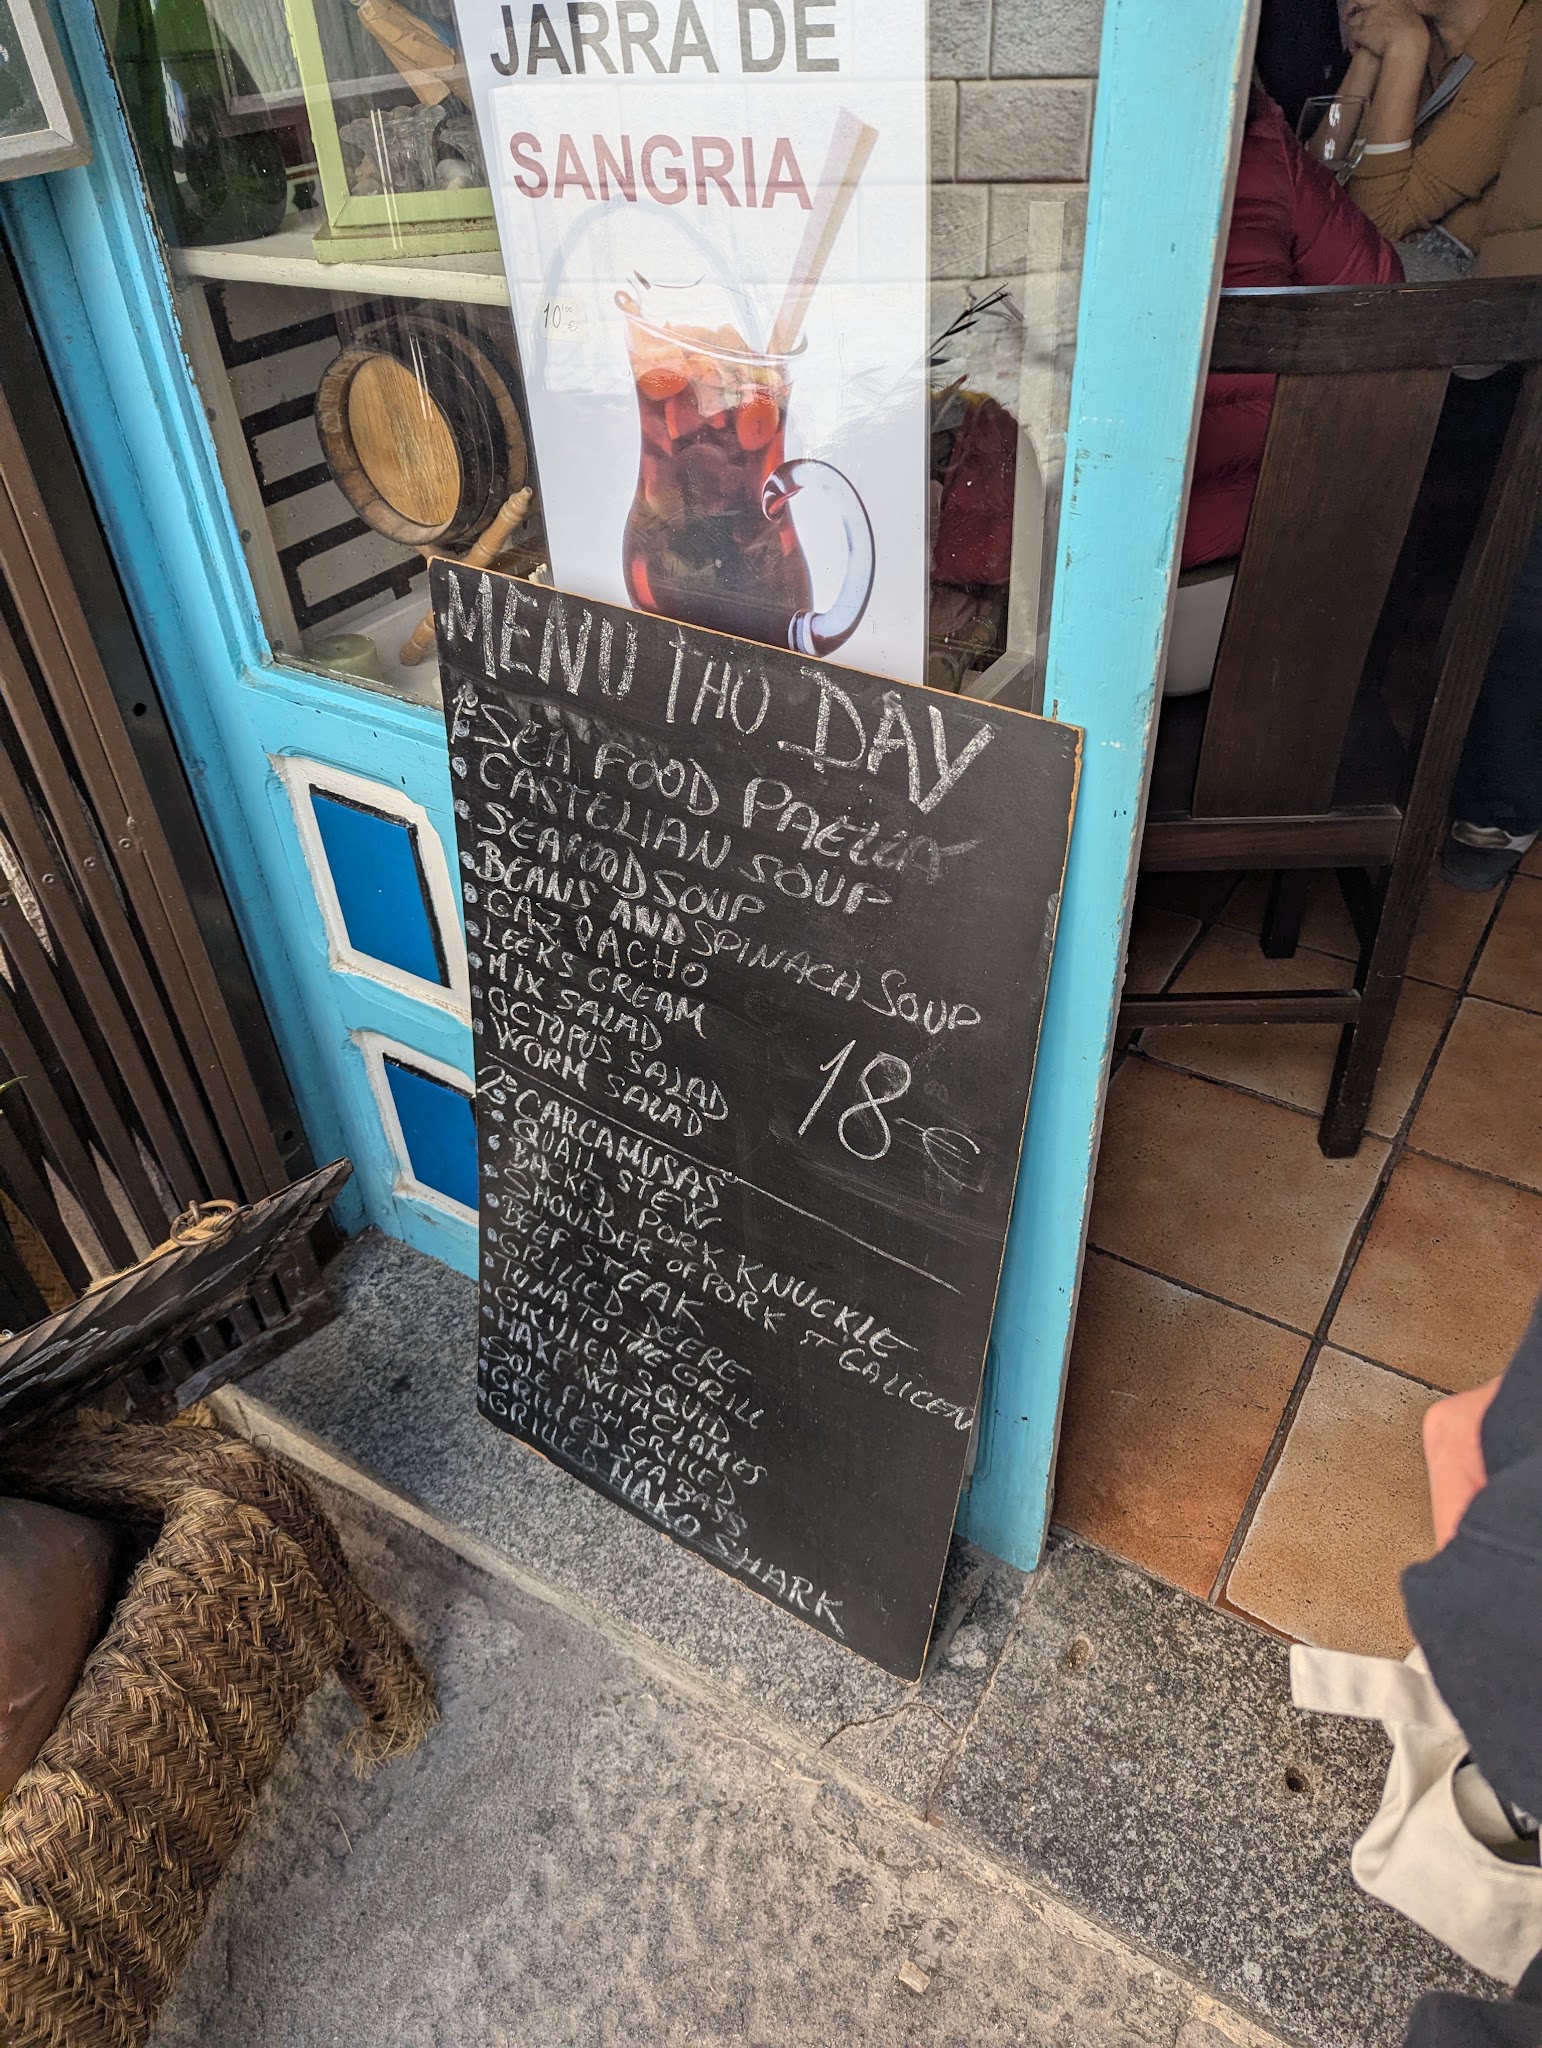 JARRA DE
SANGRIA
10'00 €
MENU THU DAY
1º SEA FOOD PAELLA
• CASTELIAN SOUP
• SEAFOOD SOUP
• BEANS AND SPINACH SOUP
• GAZPACHO
• LEEKS CREAM
• MIX SALAD
• OCTOPUS SALAD
• WORM SALAD
18 €
2º CARCAMUSAS
• QUAIL STEW
• BACKED PORK KNUCKLE
• SHOULDER OF PORK ST GALICEN
• BEEF STEAK
• GRILLED DEERE
• TUNA TO THE GRILL
• GRILLED SQUID
• HAKE WITH CLAMES
• SOLE FISH GRILLED
• GRILLED SEA BASS
• GRILLED MAKO SHARK